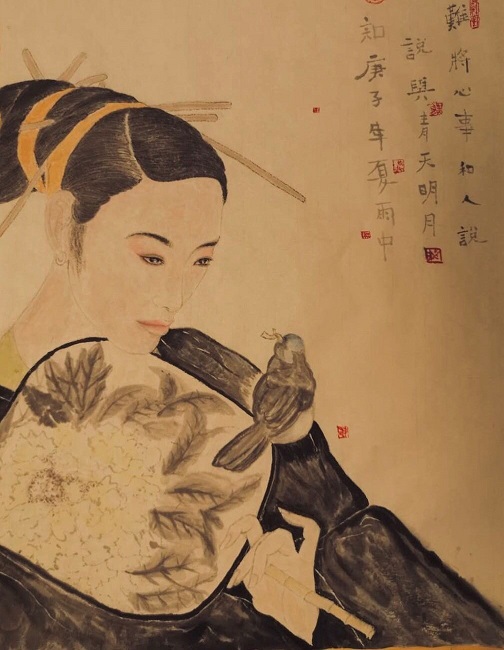 難將心事和人說
說與青天明月
知庚子年夏雨中